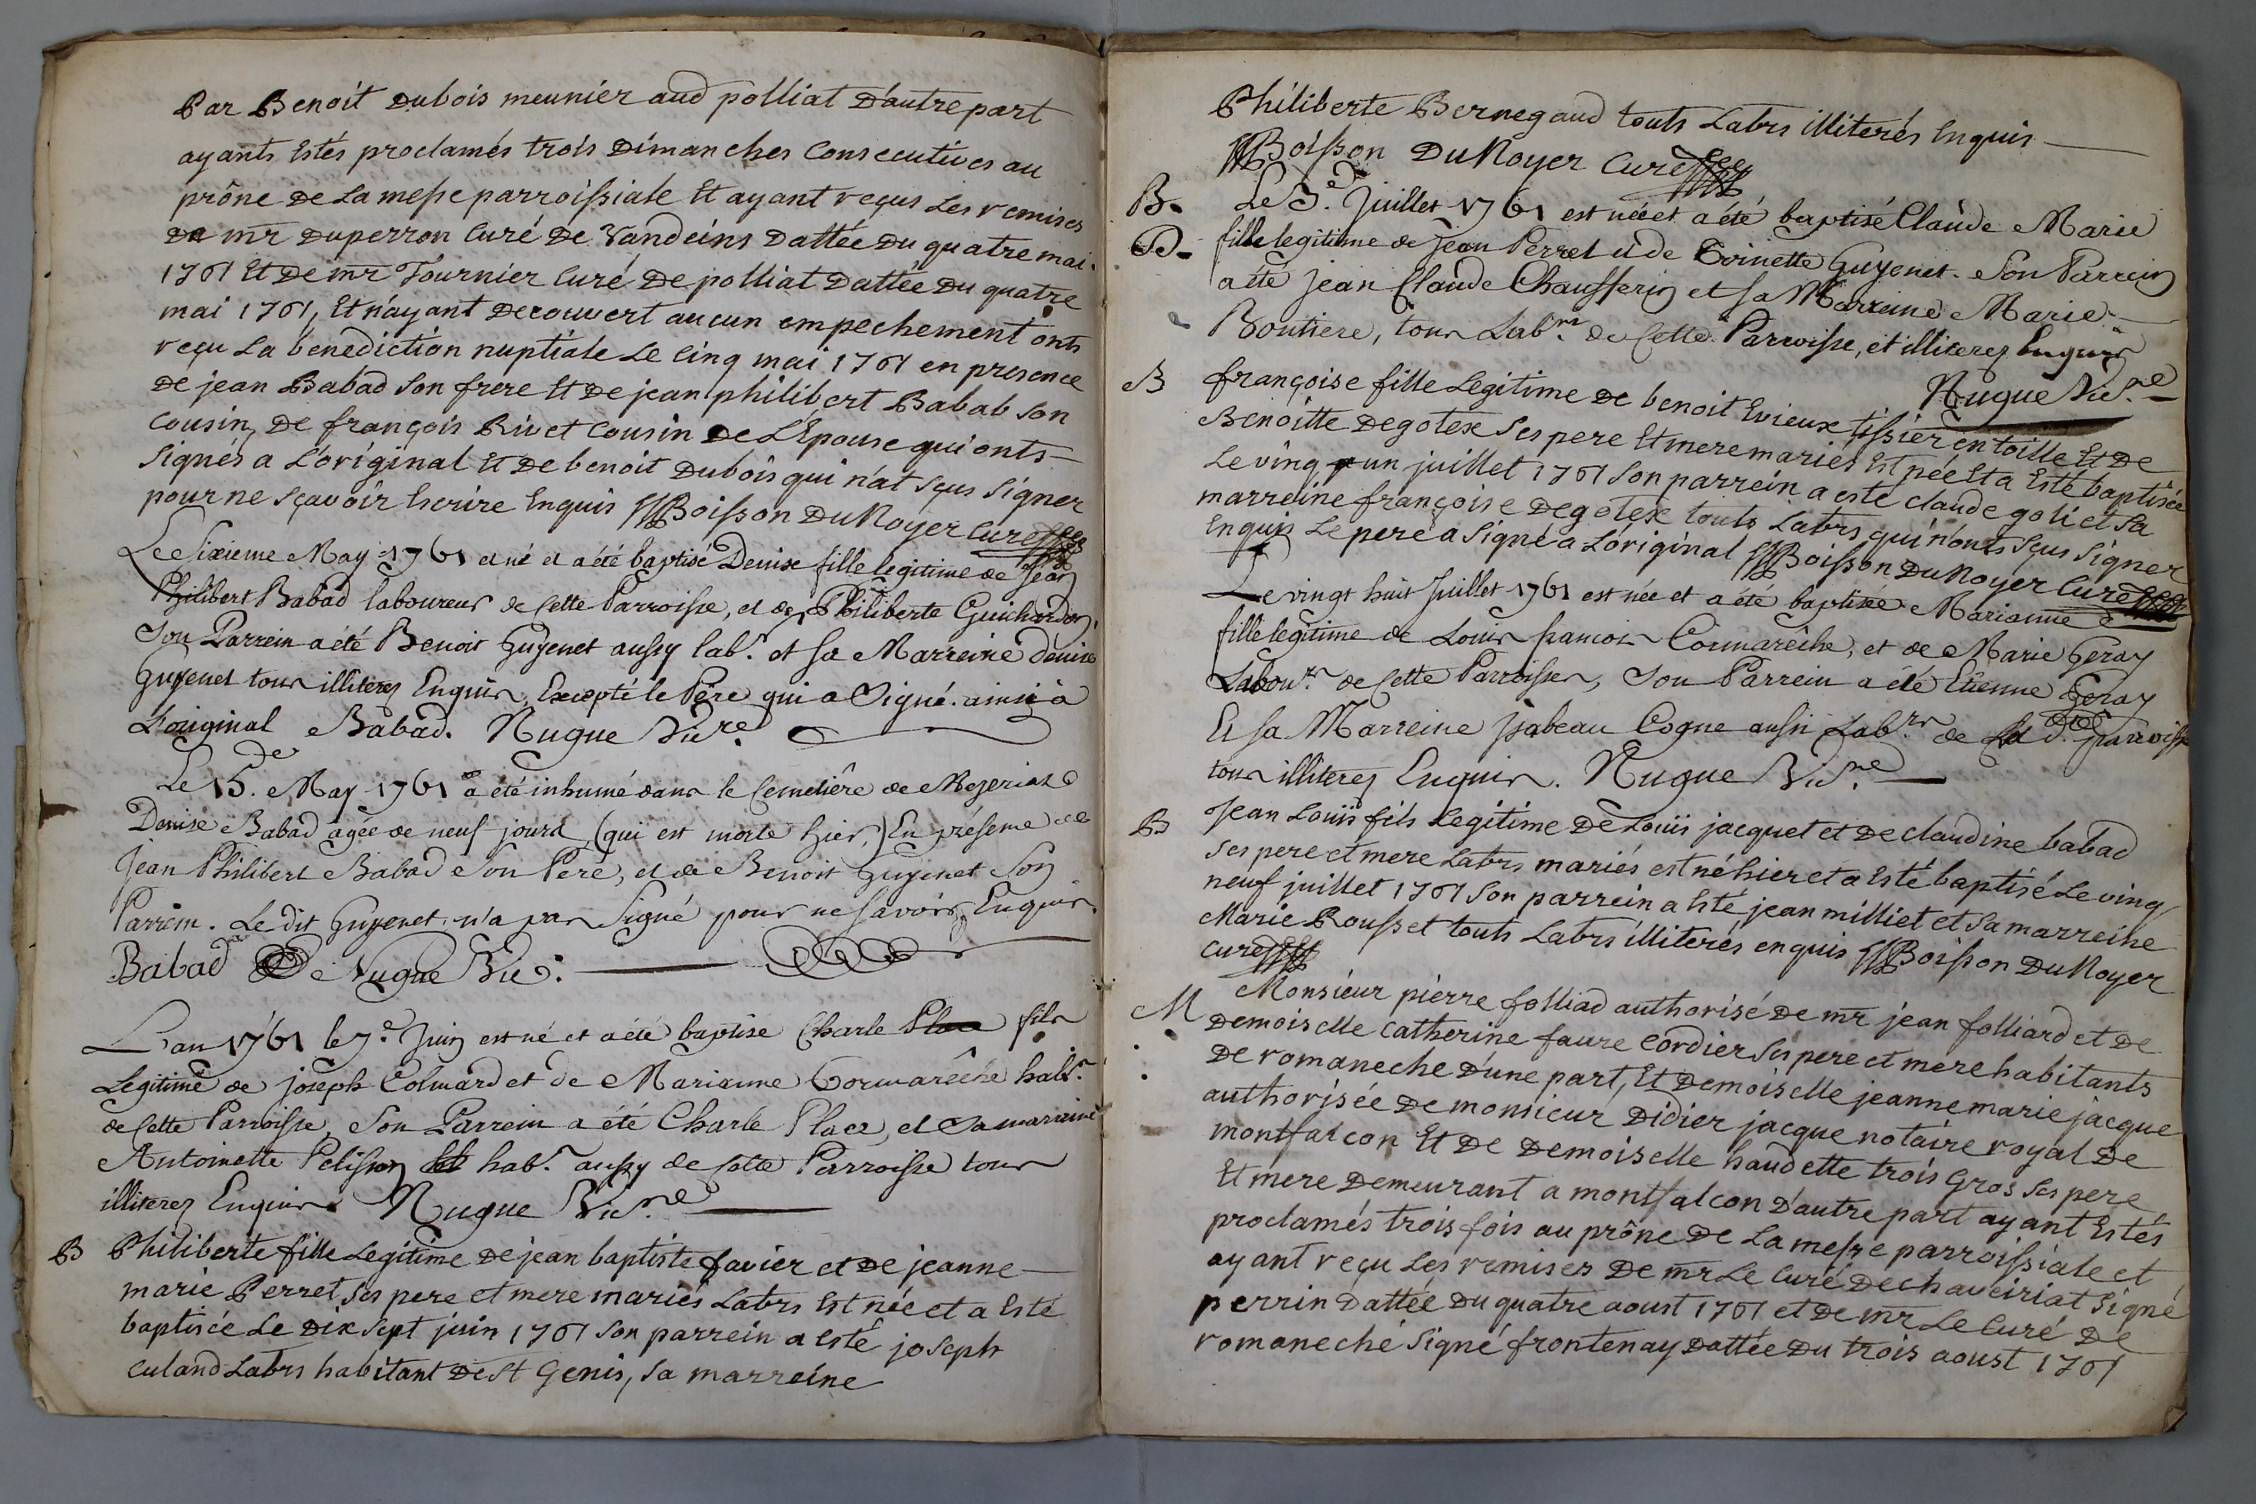 Par Benoit Dubois meunier aud polliat D'autre part
ayants Estés proclamés trois Dimanches Consecutives au
prône De La messe parroissiale Et ayant reçus Les remises
De mr Duperron Curé De Vandeins Dattée Du quatre mai
1761 Et De mr Tournier Curé De polliat Dattée Du quatre
mai 1761, Et n'ayant Decouvert aucun empechement onts
reçu La benediction nuptiale Le Cinq mai 1761 en presence
De jean Babad Son frere Et De jean philibert Babab Son
Cousin, De françois Rivet Cousin De L'Épouse qui onts
Signés a L'original Et De benoit Dubois qui n'at sçus Signer
pour ne sçavoir Escrire Enquis Boisson DuNoyer Curé
Le Sixieme May 1761 est né et a été baptisé Denise fille legitime de Jean
Philibert Babad laboureur de Cette Parroisse, et de Philiberte Guichardon,
Son Parrein a été Benoit Guyenet aussy lab.r et sa Marreine denise
Guyenet tous illiterez Enquis, Excepté le Père qui a Signé. ainsi à
L'original Babad. Nugue Vic.re
Le 15.e May 1761 a été inhumé dans le Cemetiêre de Mezeriat
Denise Babad agée de neuf jours, (qui est morte hier,) En présence de
Jean Philibert Babad Son Pere, et de Benoit Guyenet Son
Parrein. Le dit Guyenet n'a pas Signé pour ne savoir, Enquis.
Babad Nugue Vic.
L'an 1761 le 7.e Juin est né et a été baptisé Charle Place fils
Legitime de joseph Colmard et de Marianne Cormarêche hab.
de Cette Parroisse, Son Parrein a été Charle Place, et Sa marraine
Antoinette Pelisson hab. aussy de Cette Parroisse tous
illiterez Enquis. Nugue Vic.re
B Philiberte fille Legitime De jean baptiste favier et De jeanne
marie Perret, Ses pere et mere mariés Labrs Est née et a Esté
baptisée Le Dix Sept juin 1761 Son parrein a Esté joseph
Culand Labrs habitant De St Genis, Sa marreine
Philiberte Bernegaud touts Labrs illiterés Enquis
Boisson DuNoyer Curé
B. Le 3.e Juillet 1761 est née et a été baptisé Claude Marie
D. fille legitime de Jean Perret et de Toinette Guyenet. Son Parrein
a été Jean Claude Chausserin et sa Marreine Marie
Boutiere, tous Lab.rs de Cette Parroisse, et illiterez Enquis
Nugue Vic.re
B françoise fille Legitime De benoit Evieux tissier en toille Et De
Benoitte Degotex Ses pere Et mere mariés Est née Et a Esté baptisée
Le vingt un juillet 1761 Son parrein a este claude goli et Sa
marreine françoise Degotex touts Labrs qui n'onts sçus Signer
Enquis Le pere a Signé a L'original Boisson DuNoyer Curé
Le vingt huit Juillet 1761 est née et a été baptisée Marianne
fille legitime de Louis francois Cormarêche, et de Marie Geray
Labou.rs de Cette Parroisse, Son Parrein a été Etienne Geray
Et sa Marreine Isabeau Cogne aussi Lab.rs de La d.te parroisse
tous illiterez Enquis. Nugue Vic.re
B Jean Louis fils Legitime De Louis jacquet et De claudine babad
Ses pere et mere Labrs mariés est né hier et a Esté baptisé Le ving
neuf juillet 1761 Son parrein a Esté jean milliet et Sa marreine
Marie Rousset touts Labrs illiterés enquis Boisson DuNoyer
Curé
M Monsieur pierre folliad authorisé De mr jean folliard et De
Demoiselle Catherine faure Cordier Ses pere et mere habitants
De romaneche D'une part, Et Demoiselle jeanne marie jacque
authorisée De monsieur Didier jacque notaire royal De
montfalcon Et De Demoiselle haudette trois Gros Ses pere
Et mere Demeurant a montfalcon D'autre part ayant Estés
proclamés trois fois au prône De La messe parroissiale et
ayant reçu Les remises De mr Le Curé De chaveiriat Signé
perrin Dattée Du quatre aoust 1761 et De mr Le Curé De
romaneche Signé frontenay Dattée Du trois aoust 1761